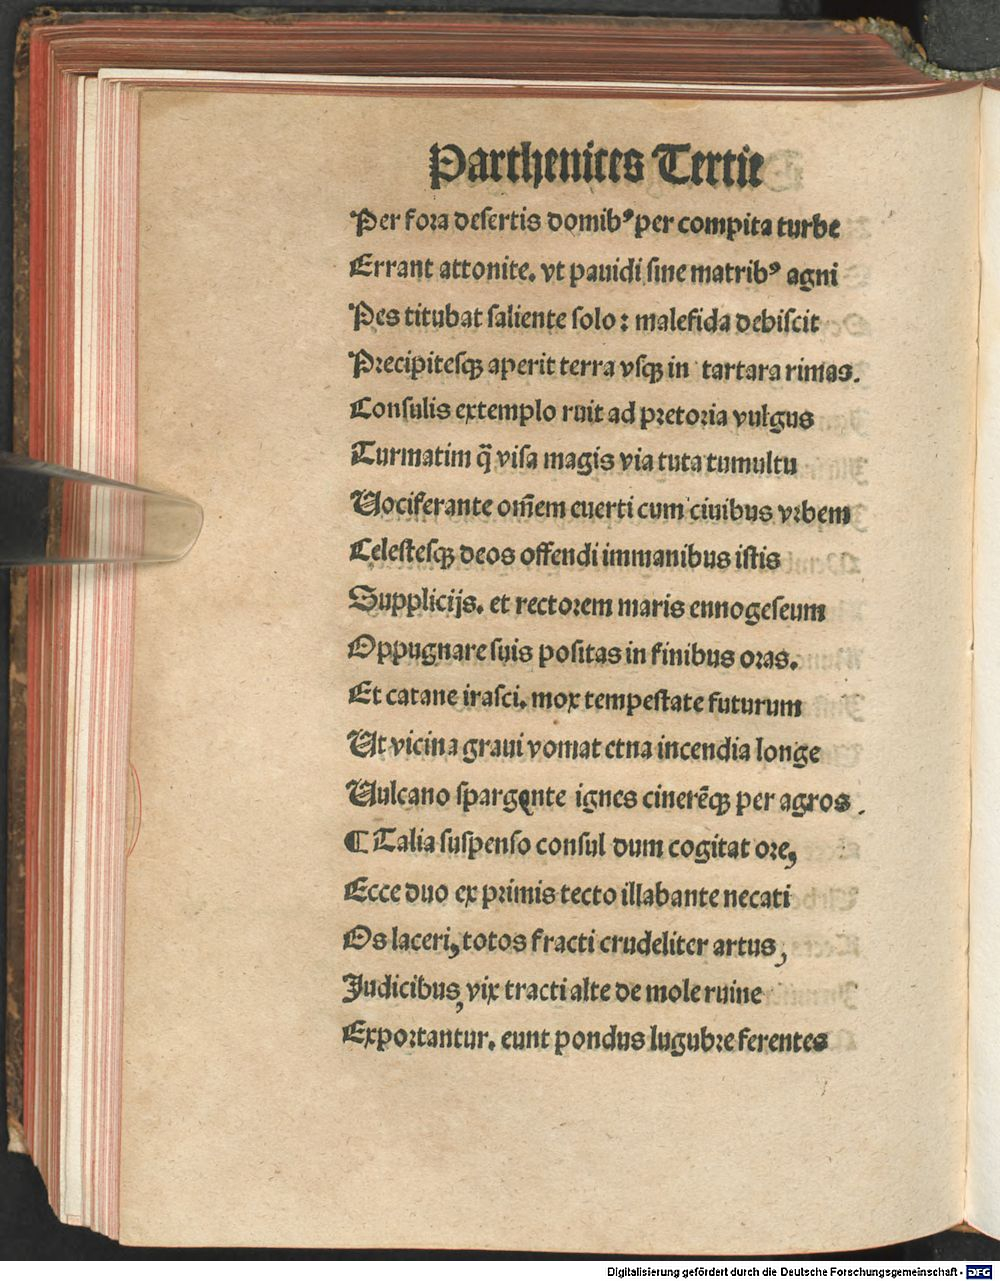 Parthenices Tertie
Per fora desertis domibꝰ per compita turbe
Errant attonite. vt pauidi sine matribꝰ agni
Pes titubat saliente solo: malefida dehiscit
Precipitesqꝫ aperit terra vsqꝫ in tartara rimas.
Consulis extemplo ruit ad pretoria vulgus
Turmatim q̃ visa magis via tuta tumultu
Uociferante om̃em euerti cum ciuibus vrbem
Celestesqꝫ deos offendi immanibus istis
Supplicijs. et rectorem maris ennogeseum
Oppugnare suis positas in finibus oras.
Et catane irasci. mox tempestate futurum
Ut vicina graui vomat etna incendia longe
Uulcano spargente ignes cinerēqꝫ per agros.
¶ Talia suspenso consul dum cogitat ore,
Ecce duo ex primis tecto illabante necati
Os laceri, totos fracti crudeliter artus,
Judicibus, vix tracti alte de mole ruine
Exportantur. eunt pondus lugubre ferentes
Digitalisierung gefördert durch die Deutsche Forschungsgemeinschaft - DFG